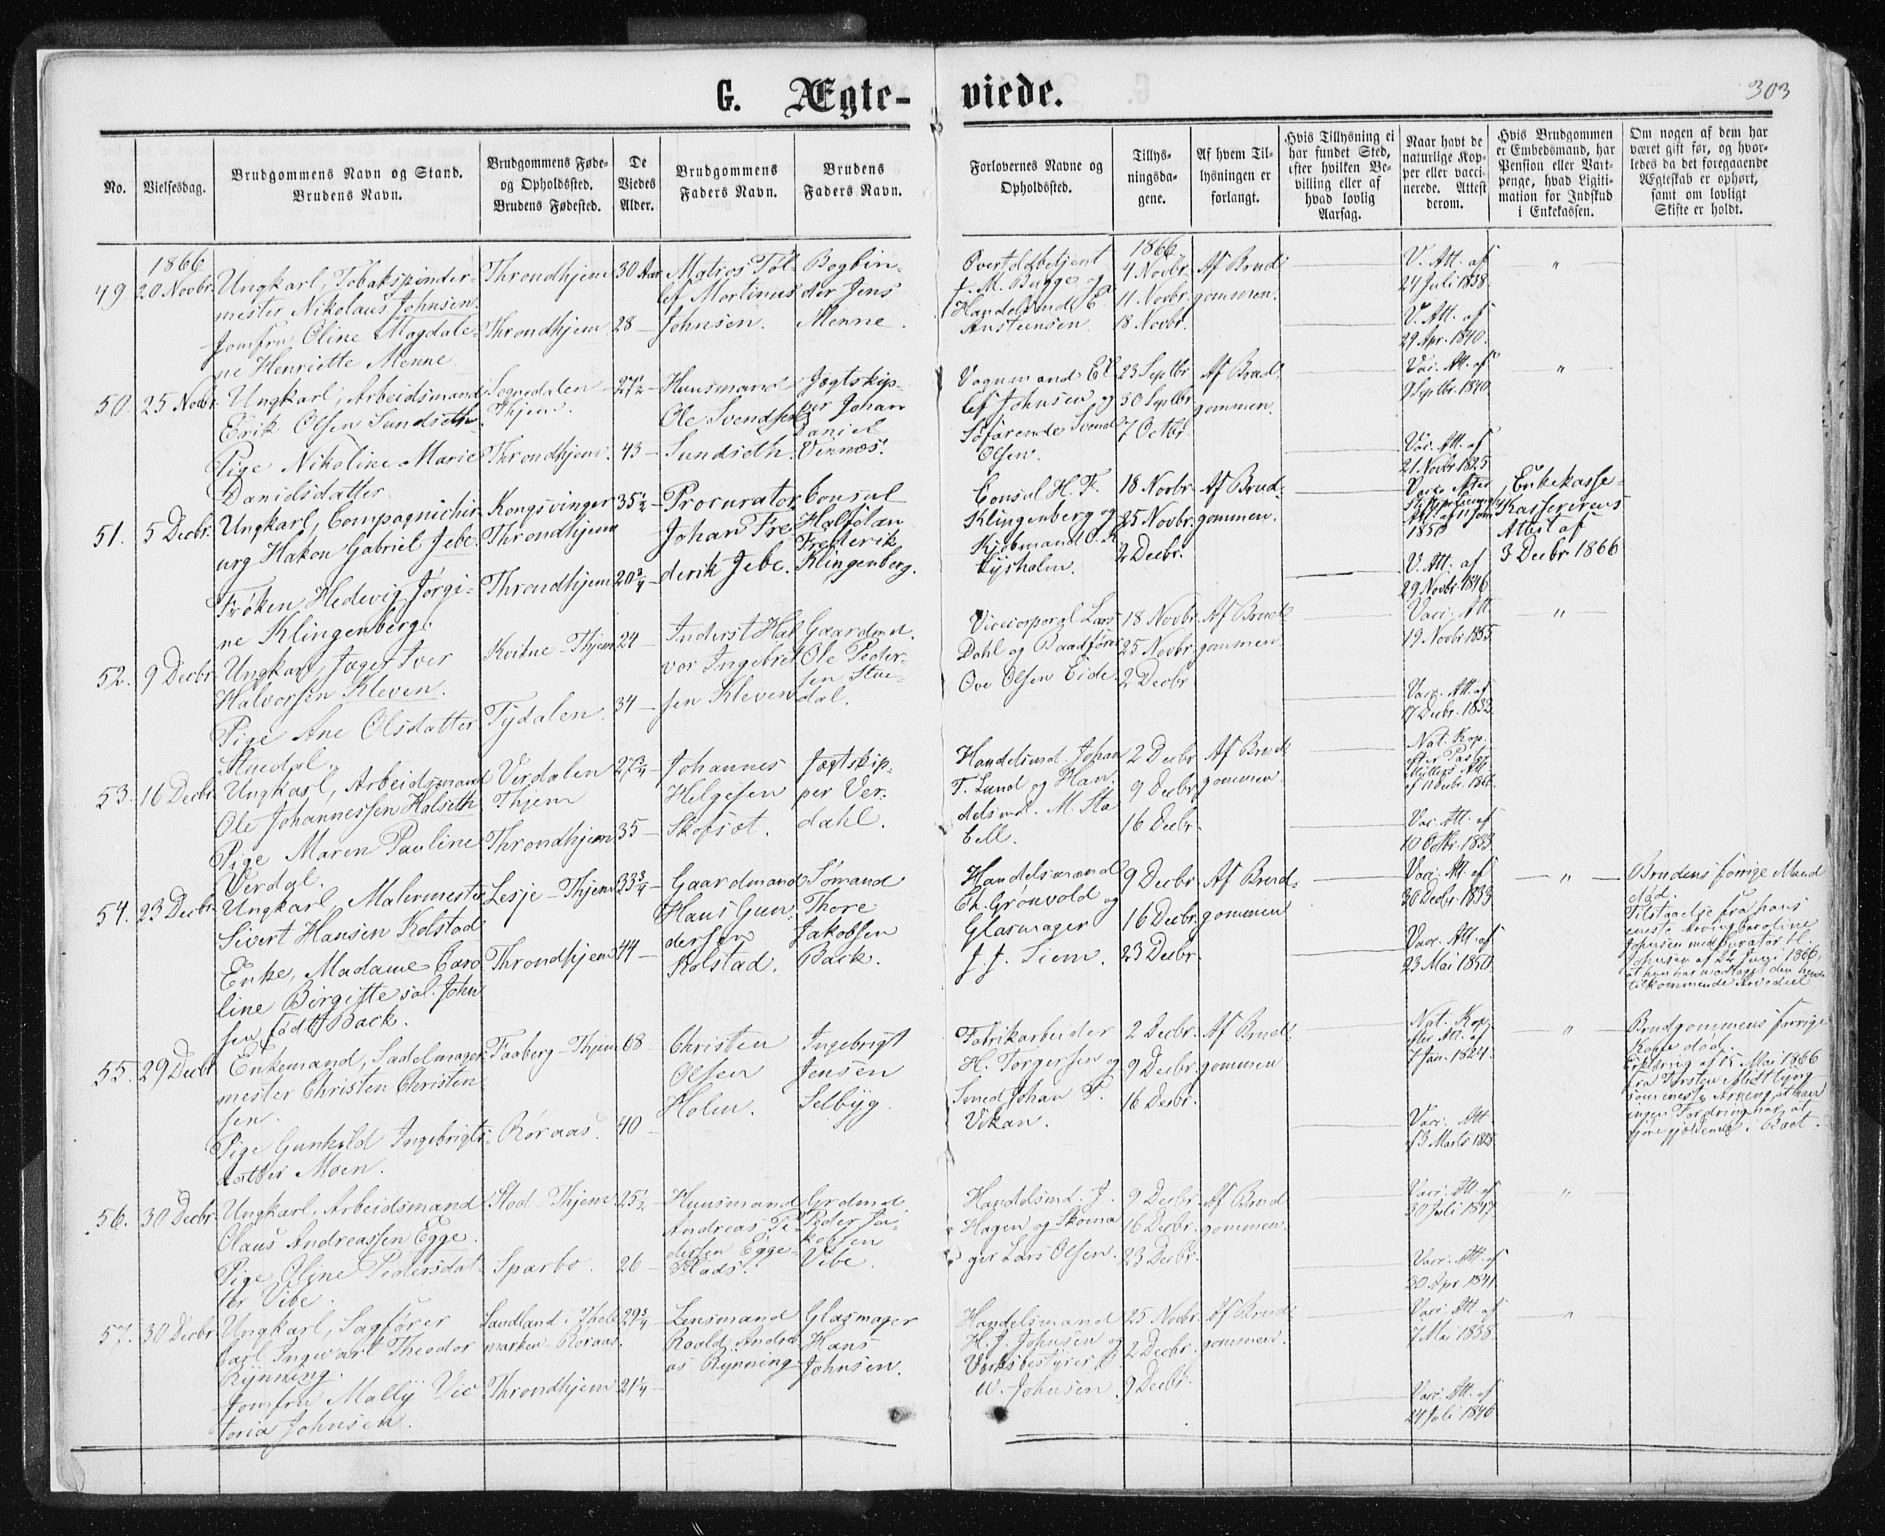 303
G. Ægte- viede.
No.
Vielsesdag.
Brudgommens Navn og Stand.
Brudens Navn.
Brudgommens Føde-
og Opholdssted.
Brudens Fødested.
De
Viedes
Alder.
Brudgommens
Faders Navn.
Brudens
Faders Navn.
Forlovernes Navne og
Opholdssted.
Tillys-
ningsda-
gene.
Af hvem Til-
lysningen er
forlangt.
Hvis Tillysning ei
har fundet Sted,
efter hvilken Be-
villing eller af
hvad lovlig
Aarsag.
Naar havt de
naturlige Kop-
per eller vacci-
nerede. Attest
derom.
Hvis Brudgommen
er Embedsmand, har
Pension eller Vart-
penge, hvad Ligiti-
mation for Indskud
i Enkekassen.
Om nogen af dem har
været gift før, og hvor-
ledes da det foregaaende
Ægteskab er ophørt,
samt om lovligt
Skifte er holdt.
49
1866
20 Novbr.
Ungkarl, Tobakspinder-
mester Nikolaus Johnsen.
Jomfru Oline Magdale-
ne Henriette Menne
Throndhjem
Throndhjem
30 Aar
28 —
Matros Tøl-
lef Martinus
Johnsen.
Bogbin-
der Jens
Menne.
Overtoldbetjent
J. M. Bugge og
Handelsmd E.
Ansteensen
1866
4 Novbr.
11. Novbr.
18 Novbr.
Af Brud-
gommen.
V. Att. af
24 Juli 1838.
V. Att. af
29 Apr. 1840.
"
50
25 Novbr.
Ungkarl, Arbeidsmand
Erik Olsen Sundseth.
Pige Nikoline Marie
Danielsdatter.
Sognedalen
Thjem.
Throndhjem.
27½ —
43 —
Huusmand
Ole Svendsen
Sundseth.
Jagtskip-
per Johan
Daniel
Vennæs.
Vognmand El-
lef Johnsen og
Søfarende Svend
Olsen.
23 Septbr.
30 Septbr.
7 Octbr.
Af Brud-
gommen.
Vac. Att. af
9 Septbr. 1840.
Vac. Att. af
21. Novbr 1825
"
51.
5 Decbr.
Ungkarl, Compagnichir-
urg Hakon Gabriel Jebe.
Frøken Hedevig Jørgi-
ne Klingenberg.
Kongsvinger
Throndhjem
Throndhjem
35½ —
20¾ —
Procurator
Johan Fre-
derik Jebe.
Consul
Halfdan
Frederik
Klingenberg.
Consul H. F.
Klingenberg og
Kjøbmand O. K
Lysholm.
18 Novbr.
25 Novbr.
2 Decbr.
Af Brud-
gommen.
1850
V. Att. af
29 Novbr 1846.
Enkekasse-
Kassererens
Attest af
3 Decbr 1866
52.
9 Decbr.
Ungkarl, Jæger Iver
Halvorsen Kleven.
Pige Ane Olsdatter
Stuedal.
Kvikne - Thjem
Tydalen.
24 —
34 —
Inderst Hal-
vor Ingebrit
sen Kleven
Gaardmd.
Ole Peder-
sen Stue-
dal.
Vicecorporal Lars
Dahl og Baadfører
Ove Olsen Eide
18 Novbr.
25 Novbr.
2 Decbr
Af Brud-
gommen
Vacc. Att.
19. Novbr 1855.
Vacc. Att. af
17 Decbr. 1833
"
53.
16 Decbr.
Ungkarl, Arbeidsmand
Ole Johannessen Halseth
Pige Maren Pauline
Verdal.
Verdalen
Thjem
Throndhjem
27¾ —
35 —
Johannes
Helgesen
Skofsæt.
Jagtskip-
per Ver-
dahl.
Handelsmd. Johan
T. Lund og Han-
delsmd. M. Sta
bell.
2 Decbr
9 Decbr
16 Decbr.
Af Brud-
gommen
Nat. Kop.
efter Pastor
Müllers Att.
af 11 Decbr. 1866.
Vac. Att. af
10 Octbr. 1833
54.
23 Decbr.
Ungkarl, Malermester
Sivert Hansen Kolstad
Enke, Madame Caro-
line Birgitte sal. John-
sen født Back.
Lesje - Thjem
Throndhjem
33¾ —
44 —
Gaardmand
Hans Gun-
dersen
Kolstad.
Sømand
Thore
Jakobsen
Back.
Handelsmand
Ch. Grønvold og
Glasmager
J. J. Siem.
9 Decbr.
16 Decbr.
23 Decbr.
Af Brud-
gommen
Vacc. Att. af
30 Decbr. 1833
Vacc. Att. af
23 Mai 1850
"
Brudens forrige Mand
død.
Tilstaaelse fra hans
eneste Arving Caroline
Johnsen med Curator H.
Johnsen af 22 Juni 1866,
at hun har modtaget den hende
tilkommende Arvedeel
55.
29 Decbr.
Enkemand, Sadelmager-
mester Christen Christen
sen.
Pige Gunhild Ingebrigts-
datter Moen.
Faaberg - Thjem
Røraas.
68 —
40 —
Christen
Olsen
Holen.
Ingebrigt
Jensen
Selbyg.
Fabrikarbeider
H. Torgersen og
Smed Johan T.
Vikan.
2 Decbr.
9 Decbr.
16 Decbr.
Af Brud-
gommen
Nat. Kop.
efter Att. af
7 Jan. 1824.
Vacc. Att.
13 Marts 1828
"
Brudgommens forrige
Kone død.
Erklæring af 15 Mai 1866
fra Torsten Midtlyng
som eneste Arving, at han
ingen Fordring har at
gjøre gjældende i Boet.
56.
30 Decbr.
Ungkarl, Arbeidsmand
Claus Andreassen Egge.
Pige Oline Pedersdat-
ter Vibe.
Stod - Thjem
Sparbo.
25½ —
26 —
Huusmand
Andreas Pe-
dersen Egge-
Grdmd.
Peder Ja-
kobsen
Vibe.
Handelsmd. J.
Hagen og Skoma
ger Lars Olsen.
9 Decbr.
16 Decbr.
23 Decbr.
Af Brud-
gommen.
Vacc. Att. af
30 Juli 1847.
Vacc. Att. af
30 Apr. 1841.
"
57.
30 Decbr.
Ungkarl, Sagfører
Carl Ingwart Theodor
Rynning.
Jomfru Mally Vic-
toria Johnsen.
Sandland i Thele-
marken - Røraas.
Throndhjem
29¾ —
21¼ —
Lensmand
Roald Andre-
as Rynning
Glasmager
Hans
Johnsen.
Handelsmand
H. J. Johnsen og
Værksbestyrer
W. Johnsen
25 Novbr.
2 Decbr.
9 Decbr.
Af Brud-
gommen.
Vacc. Att. af
7 Mai 1838.
Vacc. Att. af
24 Juli 1846
"